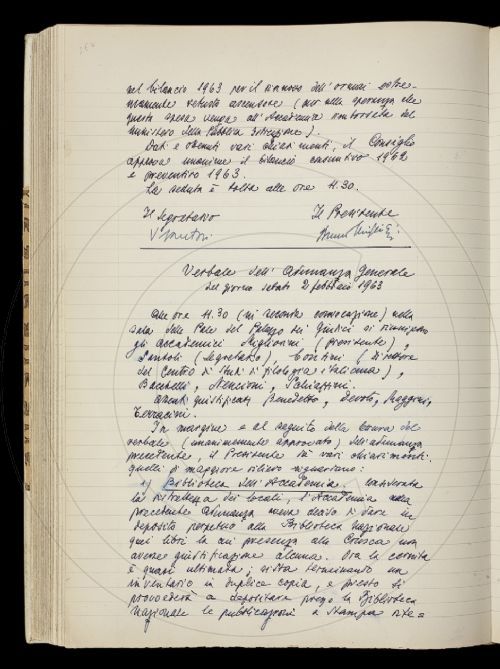 nel bilancio 1963 per il rinnovo dell'ormai estre-
mamente vetusto ascensore (pur nella speranza che
questa spesa venga all'Accademia rimborsata dal
Ministero della Pubblica Istruzione).
Dati e ottenuti vari chiarimenti, il Consiglio
approva unanime il bilancio consuntivo 1962
e preventivo 1963.
La seduta è tolta alle ore 11.30.
Il Segretario Il Presidente
Bruno Migliorini
Verbale dell'Adunanza Generale
del giorno sabato 2 febbraio 1963
Alle ore 11.30 (in seconda convocazione) nella
sala delle Pale del Palazzo dei Giudici si riuniscono
gli accademici Migliorini (presidente),
Santoli (segretario), Contini (Direttore
del Centro di Studi di filologia italiana),
Bacchelli, Nencioni, Schiaffini.
Assenti giustificati Benedetto, Devoto, Maggini,
Terracini.
In margine e al seguito della lettura del
verbale (unanimemente approvato) dell'adunanza
precedente, il Presidente dà vari chiarimenti:
quelli di maggiore rilievo riguardano:
1) Biblioteca dell'Accademia. Considerata
la ristrettezza dei locali, l'Accademia nella
precedente adunanza aveva deciso di dare in
deposito perpetuo alla Biblioteca Nazionale
quei libri la cui presenza alla Crusca non
avesse giustificazione alcuna. Ora la cernita
è quasi ultimata; si sta terminando un
inventario in duplice copia, e presto si
provvederà a depositare presso la Biblioteca
Nazionale le pubblicazioni a stampa rite=